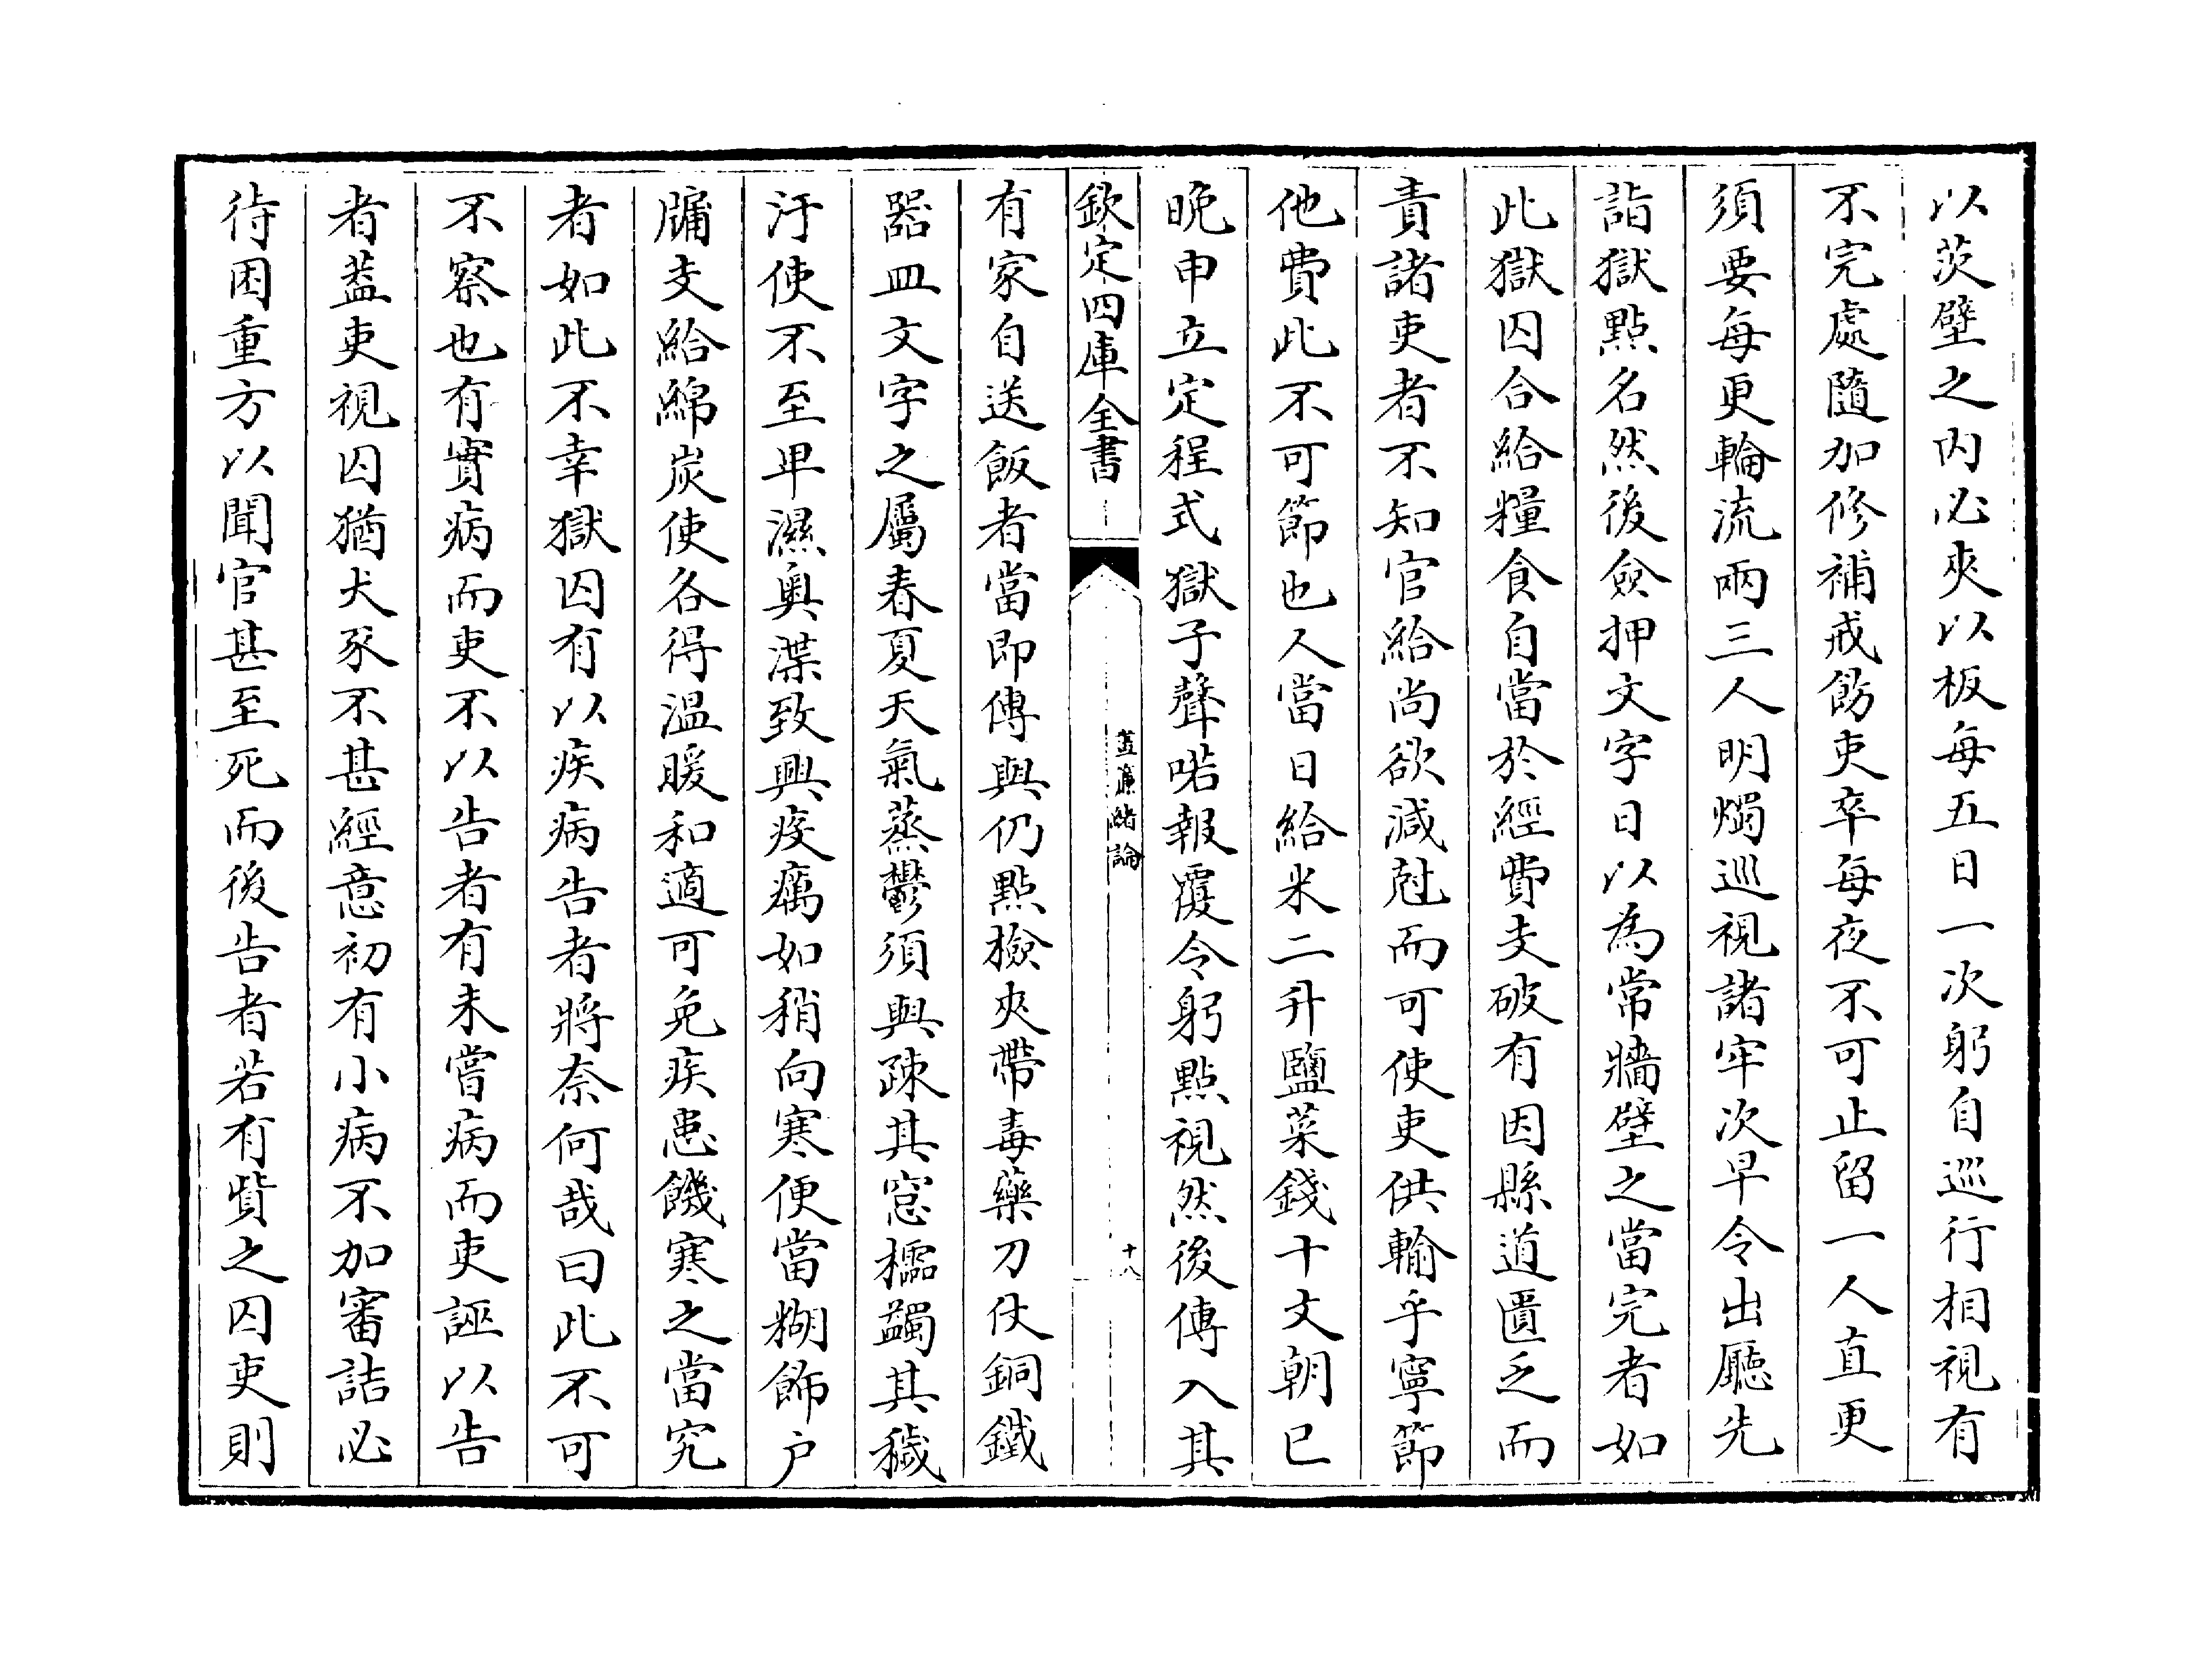 以茨壁之内必夾以板每五日一次躬自巡行相視有
不完處隨加修補戒飭吏卒每夜不可止留一人直更
須要每更輪流兩三人明燭巡視諸牢次早令出廳先
詣獄點名然後僉押文字日以為常牆壁之當完者如
此獄囚合給糧食自當於經費支破有因縣道匱乏而
責諸吏者不知官給尚欲減尅而可使吏供輸乎寧節
他費此不可節也人當日給米二升鹽菜錢十文朝已
晩申立定程式獄子聲喏報覆令躬點視然後傳入其
欽定四庫全書
晝簾緒論
十八
有家自送飯者當即傳與仍點檢夾帶毒藥刀仗銅鐵
器皿文字之屬春夏天氣蒸鬱須與疎其窓櫺蠲其穢
汙使不至卑濕奥渫致興疫癘如稍向寒便當糊飾户
牖支給綿炭使各得温暖和適可免疾患饑寒之當究
者如此不幸獄囚有以疾病告者將奈何哉曰此不可
不察也有實病而吏不以告者有未嘗病而吏誣以告
者葢吏視囚猶犬豕不甚經意初有小病不加審詰必
待困重方以聞官甚至死而後告者若有貲之囚吏則